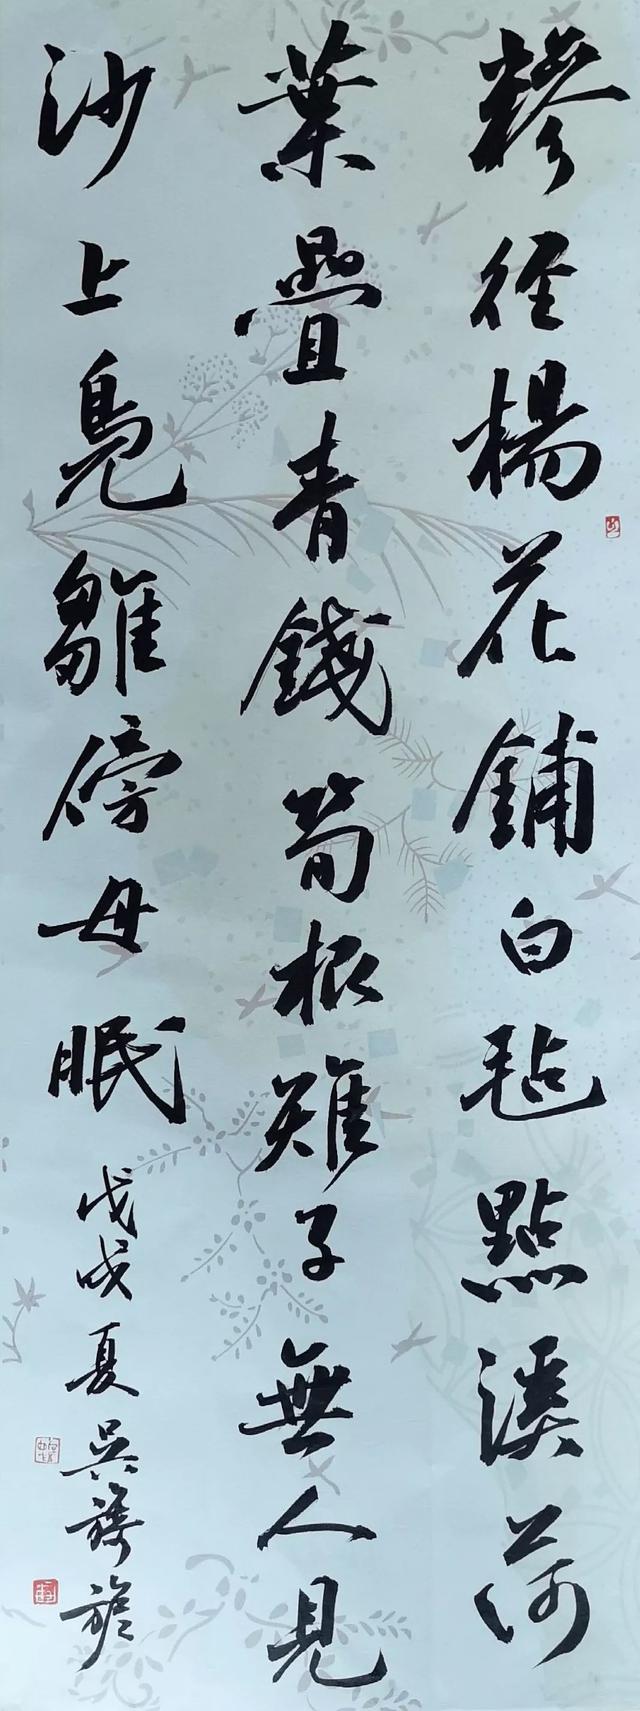 糝徑楊花鋪白毡點溪荷
葉疊青錢筍根雉子無人見
沙上鳧雛傍母眠
戊戌夏吳